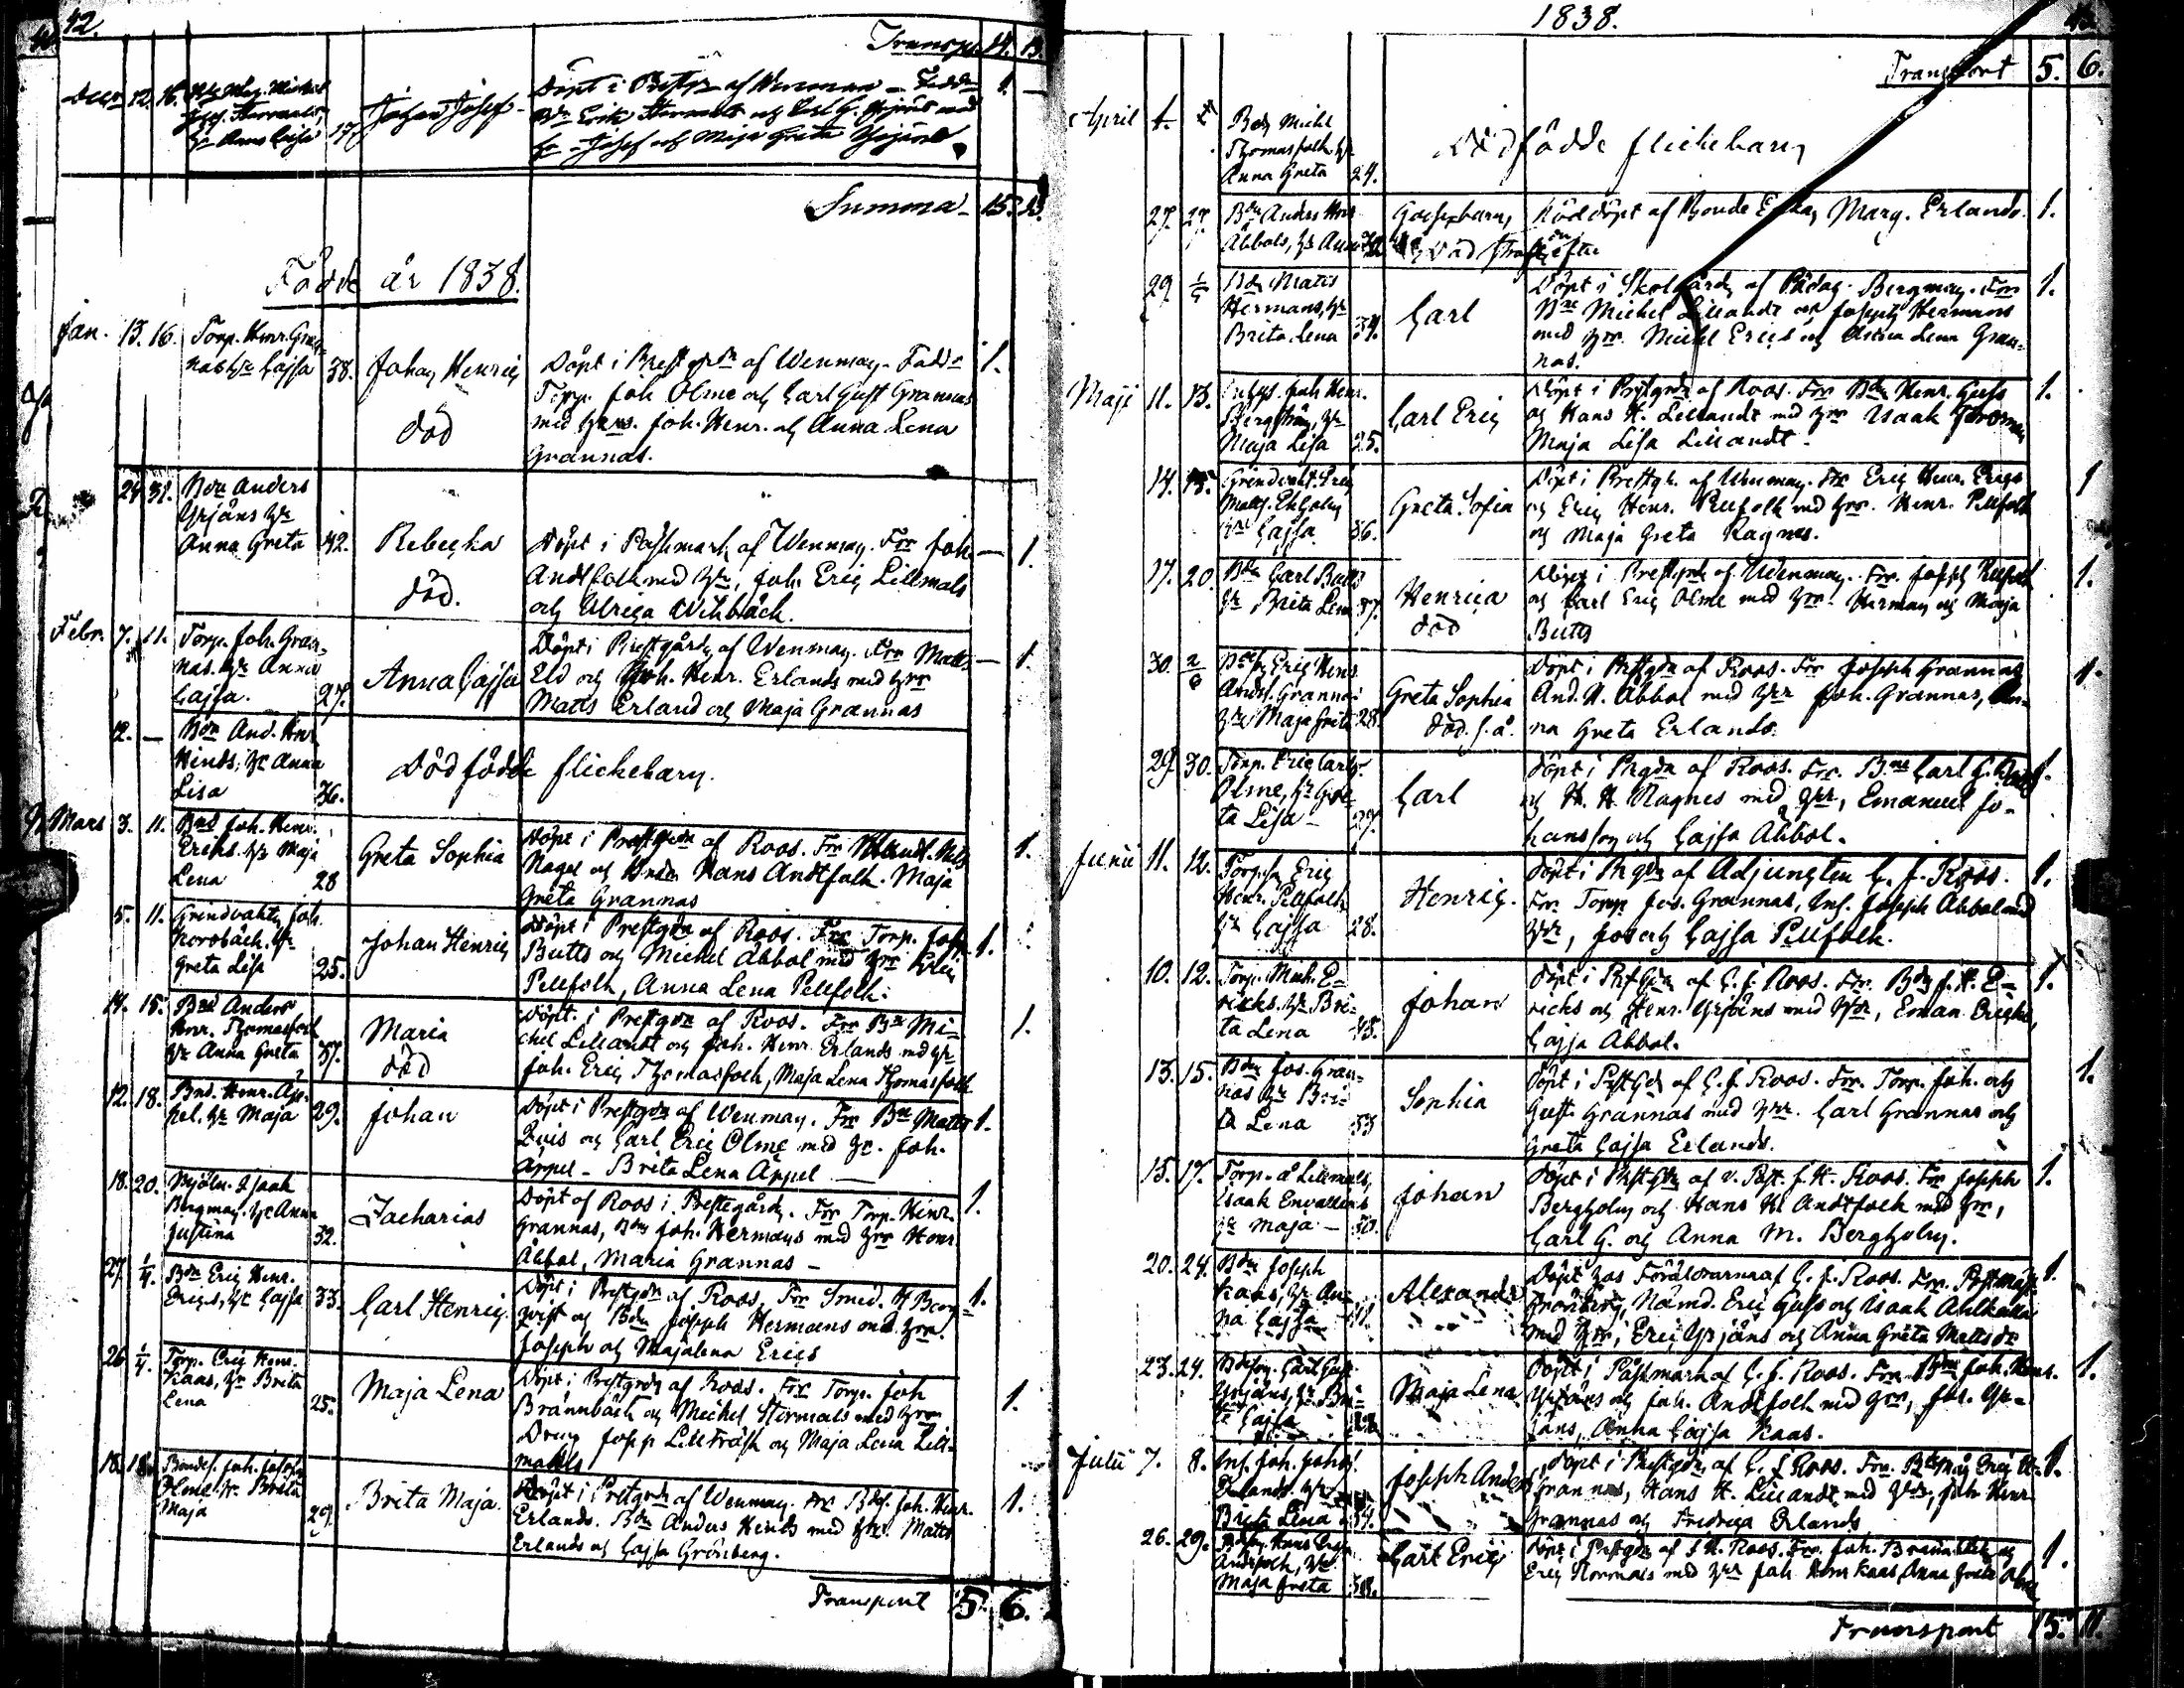 42.
Transp. 14. 13.
Decr 12. 16.
Hr Anna Cajsa 37
Johan Josef
Döpt i Prestg. af Wenman - Fadd.
och Maja Greta
1. —
Summa 15. 13.
Födde år 1838.
Jan. 13. 16. Torp. Henr. Gran-
nas hr Cajsa 38.
Johan Henric
död
Döpt i Prestgrdn af Wenman. Faddr
Torp. Joh. Olme och Carl Gust Grannas
med hrus. Joh. Henr. och Anna Lena
Grannas.
1.
24. 31. Bdn Anders
Yrjäns hr
Anna Greta 42.
Rebecka
död.
Döpt i Påssmark af Wenman. Fdr Joh.
Andtfolk med hr, Joh. Eric Lillmåls
och Ulrica Wikbäck.
— 1.
Febr. 7. 11. Torp. Joh. Gran-
nas. hr Anna
Cajsa. 27.
Anna Cajsa
Döpt i Prestgårdn af Wenman. Fdr Matts
Eld och Joh. Henr. Erlands med hrr
Matts Erland och Maja Grannas
— 1.
12. — Bdn And. Henr.
Hinds, hr Anna
Lisa 36.
Död födde flickebarn.
Mars 3. 11. Bnd Joh. Henr.
Erichs. hr Maja
Lena 28
Greta Sophia
Döpt i Prestgrdn af Roos. Fdr
Nagel och Hans Andtfolk. Maja
Greta Grannas
1.
5. 11. Grindvakt. Joh.
Norrbäck. hr
Greta Lisa 25.
Johan Henric
Döpt i Prestgrdn af Roos. Fdr Torp. Josp.
Butts och Michel Abbol med hrr Eric
Pellfolk, Anna Lena Pellfolk.
1.
14. 15. Bnd Anders
Henr. Thomasfolk
hr Anna Greta 37.
Maria
död
Döpt i Prestgrdn af Roos. Fdr Bdr Mi-
chel Lillandt och Joh. Henr. Erlands med hr
Joh. Eric Thomasfolk, Maja Lena Thomasfolk
1.
12. 18. Bnd. Henr. Ap-
pel. hr Maja 29.
Johan
Döpt i Prestgrdn af Wenman. Fdr Bdr Matts
Qvis och Carl Eric Olme med hr. Joh.
Appel - Brita Lena Appel
1.
18. 20. Mjöln. Isaak
Bergman. hr Anna
Justina 32.
Zacharias
Döpt af Roos i Prestegårdn. Fdr Torp. Henr.
Grannas, Bdn Joh. Hermans med hrr Henr.
Abbol, Maria Grannas -
1.
27. 1/4. Bdn Eric Henr.
Erics, hr Cajsa 33.
Carl Henric
Döpt i Prestgrdn af Roos. Fdr Smed. H Berg-
qvist och Bdn Joseph Hermans med hrr.
Joseph och Majalena Erics
1.
26 1/4. Torp. Eric Henr.
Kaas, hr Brita
Lena 25.
Maja Lena
Döpt i Prestgrdn af Roos. Fdr Torp. Joh
Brännback och Michel Normals med hrr
Dreng Josp Lillfräsk och Maja Lena Lill-
måhls
1.
18. 18. Bondes. Joh. Joseph
Olme hr Brita
Maja 29.
Brita Maja.
Döpt i Prestgrdn af Wenman. Fdr Bdsf. Joh. Henr.
Erlands. Bdn Anders Hinds med hrr. Matts
Erlands och Cajsa Grönberg.
1.
Transport 5. 6.
1838.
Transport 5. 6.
April
Bdn Michl
Thomasfolk hr
Anna Greta 24.
Död födde flickebarn
27. 27. Bdn Anders Henr
Abbols, hr Anna
Gossebarn,
död strax efter
Nöddöpt af Bonde Enkan Marg. Erlands.
1.
29. 1/5 Bdn Matts
Hermans, hr
Brita Lena 34.
Carl
Döpt i Skolgårdn af Pädag. Bergman. Fdr
Bdr Michel Lillandt och Joseph Hermans
med hrr. Michel Erics och Anna Lena Gran-
nas.
1.
Maji 11. 13. Inhys. Joh Henr.
Bergström, hr
Maja Lisa 25.
Carl Eric
Döpt i Prstgrdn af Roos. Fdr Bdr Henr. Guss
och Hans H. Lillandt med hrr Isaak
Maja Lisa Lillandt.
1.
14. 15. Grindvakt.
hr Cajsa 36.
Greta Sofia
Döpt i Prestgr. af Wenman. Fdr Eric Henr. Erics
och Eric Henr. Pellfolk med hrr. Henr. Pellfolk
och Maja Greta Ragnes.
1
17. 20. Bdn Carl Butts
hr Brita Lena 37.
Henrica
död
Döpt i Prestgrdn af Wenman. Fdr. Joseph Pellfolk
och Carl Eric Olme med hrr. Herman och Maja
Butts
1.
30. 2/6
Andrs. Grannas
hr Maja Greta 28.
Greta Sophia
död. s. å.
Döpt i Prstgrdn af Roos. Fdr Joseph Grannas
And. H. Abbol med hrr Joh. Grannas, An-
na Greta Erlands.
1.
29. 30. Torp. Eric Carls.
Olme, hr Gre-
ta Lisa - 27.
Carl
Döpt i Prgdn af Roos. Fdr. Bdr Carl G.
och H. H. Ragnes med hrr, Emanuel Jo-
hansson och Cajsa Abbol.
1.
Junii 11. 12. Torp. Eric
Henr. Pellfolk
hr Cajsa 28.
Henric.
Döpt i Prgdn af Adjuncten C. J. Roos.
Fdr Torp Jos. Grannas, Inh. Joseph Abbol med
hrr, Jos och Cajsa Pellfolk.
1.
10. 12. Torp. Mich. E-
richs. hr Bri-
ta Lena 48.
Johan
Döpt i PrstGdn af C. J. Roos. Fdr. Bdn J. H. E-
richs och Henr. Yrjäns med hrr, Eman. Erichs,
Cajsa Abbol.
1.
13. 15. Bdn Jos. Gran-
nas hr Bri-
ta Lena 33
Sophia
Döpt i PrstGd af C. J. Roos. Fdr. Torp. Joh. och
Gust. Grannas med hrr. Carl Grannas och
Greta Cajsa Erlands.
1.
15. 17. Torp. å Lillmåls,
Isaak Envalls
hr Maja - 30.
Johan
Döpt i PrstGdn af v. Past. J. H. Roos. Fdr Joseph
Bergholm och Hans H. Andtfolk med hrr,
Carl G. och Anna M. Bergholm.
1.
20. 24. Bdn Joseph
Kaas, hr An-
na Cajsa 41
Alexander
Döpt hos Föräldrarna af C. J. Roos. Fdr.
Nämd. Eric Guss och Isaak Ahlkulla
med hrr, Eric Yrjäns och Anna Greta Mattsdr
1.
23. 24. Carl Gust
Yrjäns, hr Bri-
ta Cajsa
Maja Lena
Döpt i Påssmark af C. J. Roos. Fdr Bdn Joh. Henr.
Yrjäns och Joh. Andtfolk med hrr, Jos. Yr-
jäns, Anna Cajsa Kaas.
1.
Julii 7. 8. Inh. Joh. Johs.
Erlands. hr
Brita Lena 34.
Joseph Anders
Döpt i Prestgrdn af C. J. Roos. Fdr. Eric H.
Grannas, Hans H. Lillandt med hrr, Joh Henr
Grannas och Fredrica Erlands
1.
26. 29.
Andtfolk, hr
Maja Greta 38.
Carl Eric
Döpt i Prstgdn af J. H. Roos. Fdr. Joh. Brännbäck och
Eric Normals med hrr Joh Henr Kaas, Anna Greta
1.
Transport 15. 11.